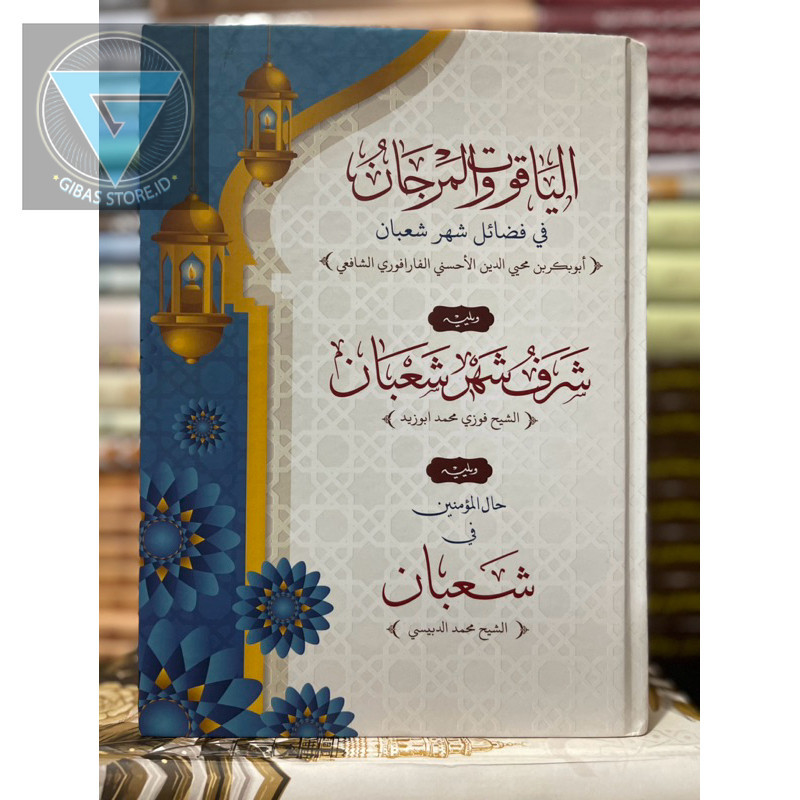 GIBAS STORE.ID
الياقوت والمرجان
في فضائل شهر شعبان
﴿ أبوبكربن محيي الدين الأحسني الفارافوري الشافعي ﴾
ويليه
شَرَفُ شَهْرِ شَعْبَان
﴿ الشيخ فوزي محمد ابوزيد ﴾
ويليه
حال المؤمنين
في
شَعبان
﴿ الشيخ محمد الدبيسي ﴾